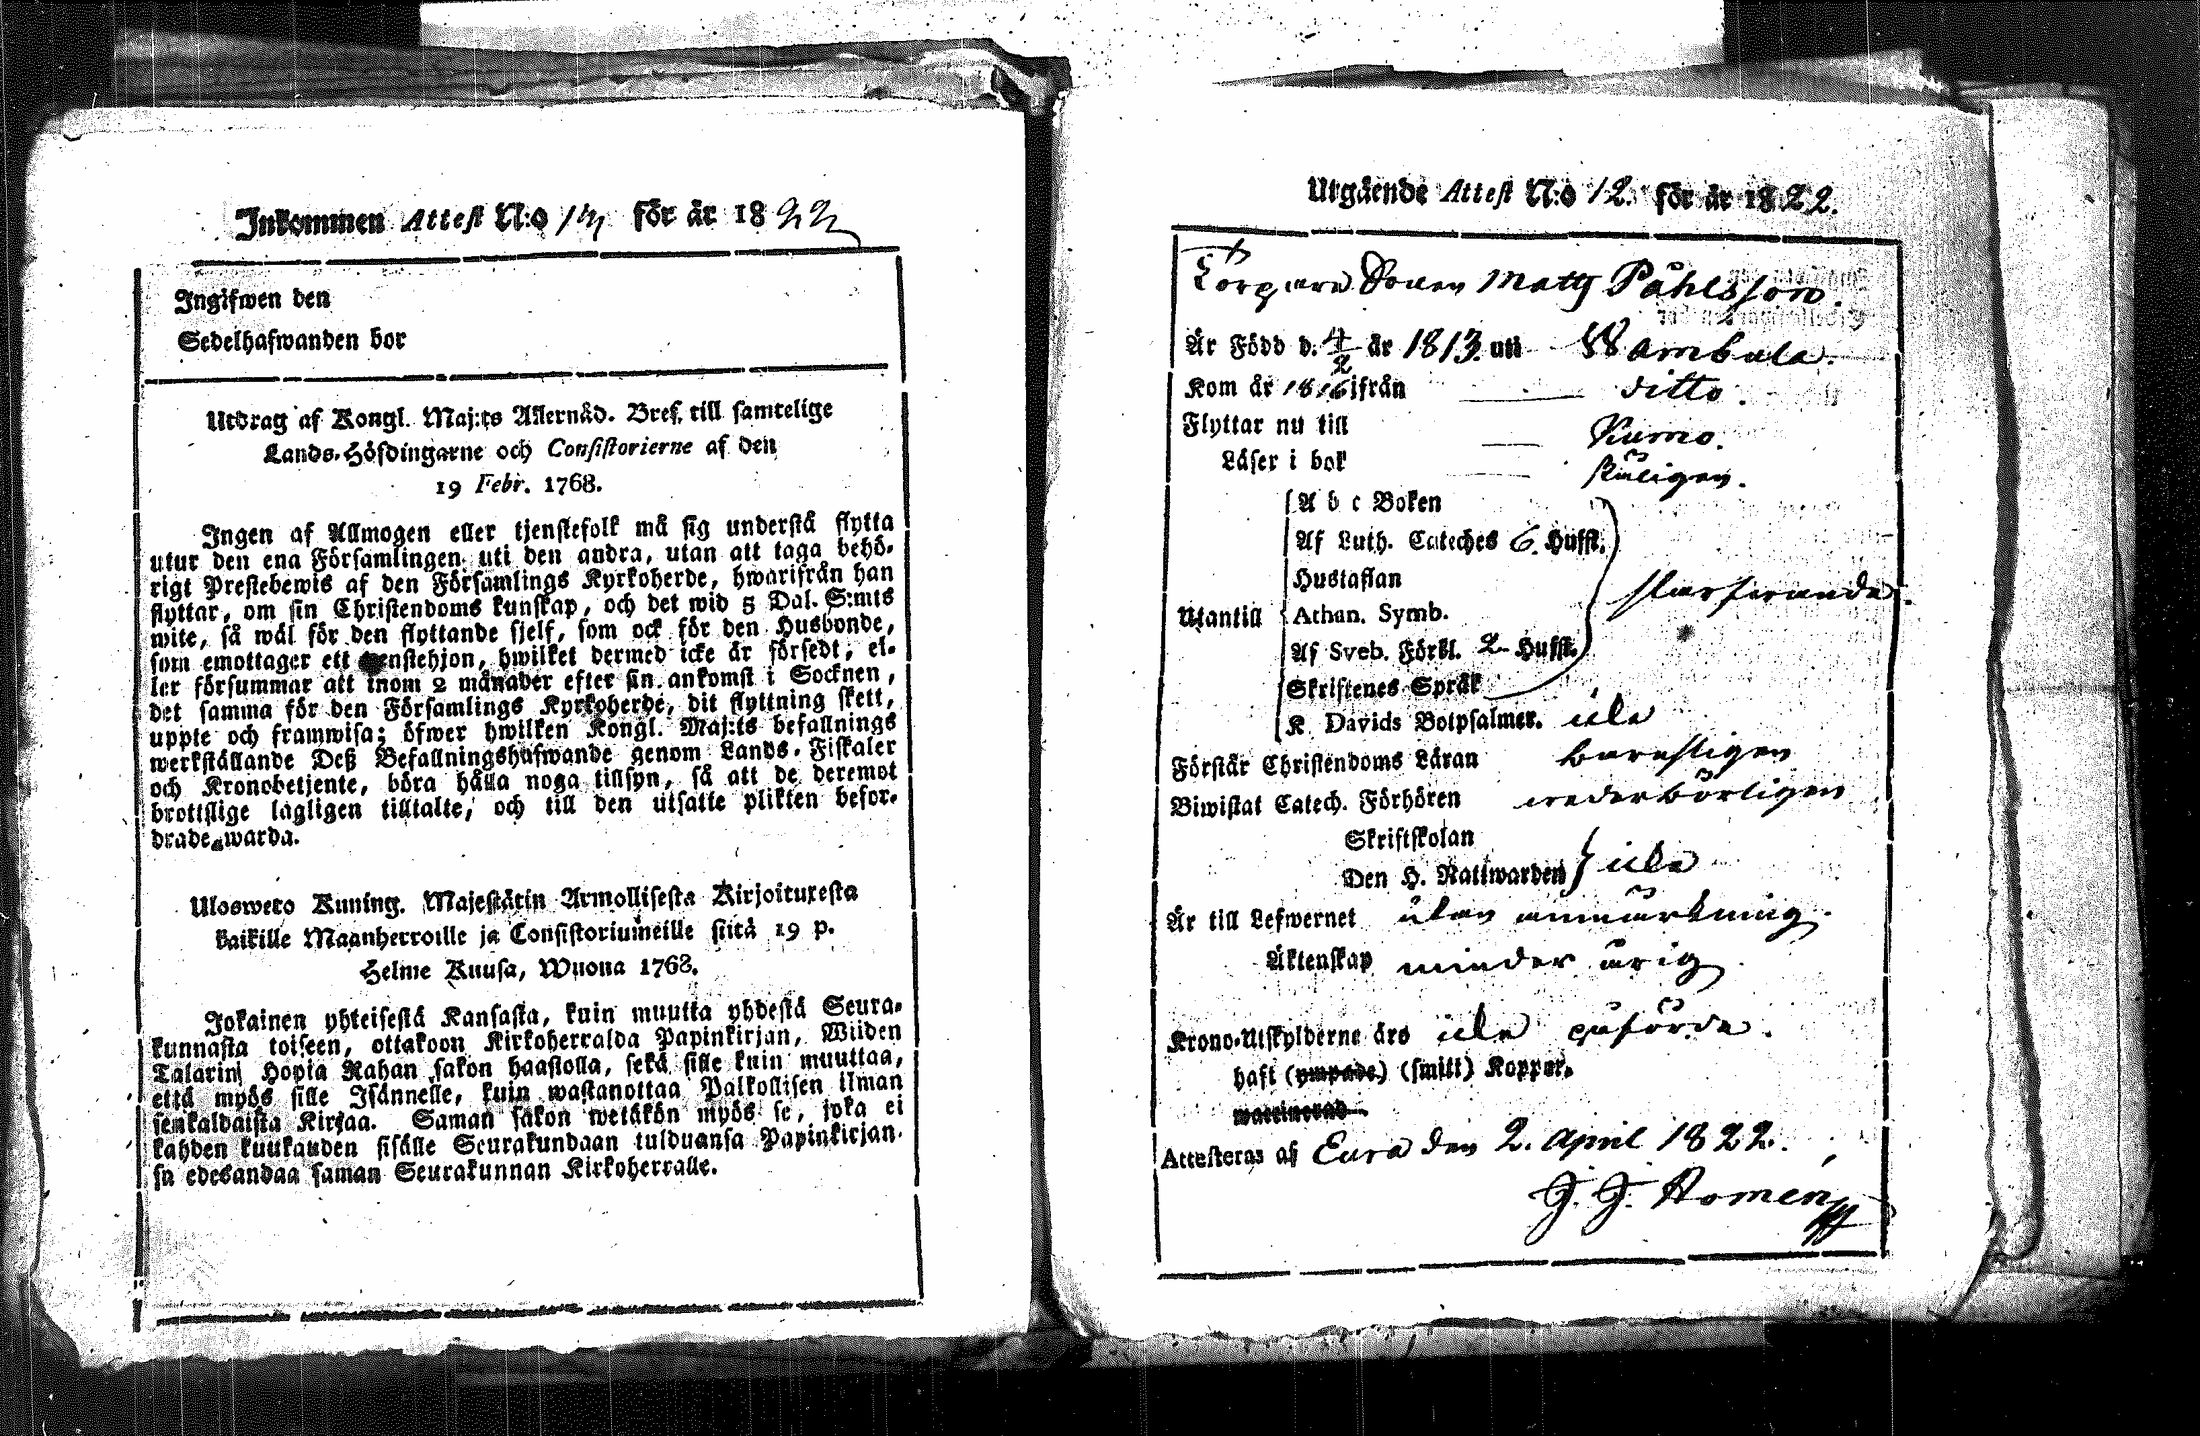 Inkommen Attest N:o 14 för år 1822
Ingifwen den
Sedelhafwanden bor
Utdrag af Kongl. Maj:ts Allernåd. Bref. till samtelige
Lands-Höfdingarne och Consistorierne af den
19 Febr. 1768.
Ingen af Allmogen eller tjenstefolk må sig understå flytta
utur den ena Församlingen uti den andra, utan att taga behö-
rigt Prestebewis af den Församlings Kyrkoherde, hwarifrån han
flyttar, om sin Christendoms kunskap, och det wid 5 Dal. S:mts
wite, så wäl för den flyttande sjelf, som ock för den Husbonde,
som emottager ett tjenstehjon, hwilket dermed icke är försedt, el-
ler försummar att inom 2 månader efter sin ankomst i Socknen,
det samma för den Församlings Kyrkoherde, dit flyttning skett,
uppte och framwisa; öfwer hwilken Kongl. Maj:ts befallnings
werkställande Deß Befallningshafwande genom Lands-Fiskaler
och Kronobetjente, böra hålla noga tillsyn, så att de deremot
brottslige lagligen tilltalte, och till den utsatte plikten befor-
drade warda.
Ulosweto Kuning. Majestätin Armollisesta Kirjoituxesta
kaikille Maanherroille ja Consistoriumeille siitä 19 p.
Helme Kuusa, Wuona 1768.
Jokainen yhteisestä Kansasta, kuin muutta yhdestä Seura-
kunnasta toiseen, ottakoon Kirkoherralda Papinkirjan, Wiiden
Talarin Hopia Rahan sakon haastolla, sekä sille kuin muuttaa,
että myös sille Isännelle, kuin wastanottaa Palkollisen ilman
senkaldaista Kirjaa. Saman sakon wetäkön myös se, joka ei
kahden kuukauden sisälle Seurakundaan tulduansa Papinkirjan-
sa edesandaa saman Seurakunnan Kirkoherralle.
Utgående Attest N:o 12. för år 1822.
Torpare Sonen Matts Påhlsson.
Är Född d. 4/2 år 1813. uti Wambula.
Kom år 1816 ifrån ditto.
Flyttar nu till Kumo.
Läser i bok
A b c Boken
Af Luth. Cateches 6. Hufst.
Hustaflan
Utantill Athan. Symb.
Af Sveb. Förkl. 2 Hufst.
Skriftenes Språk
K. Davids Botpsalmer. icke
Förstår Christendoms Läran
Biwistat Catech. Förhören wederbörligen
Skriftskolan
Den H. Nattwarden icke
Är till Lefwernet utan anmärkning.
Äktenskap minder årig
Krono-Utskylderne års icke påförde.
haft (ympade) (smitt) Koppor.
waccinerad
Attesteras af Eura den 2. April 1822.